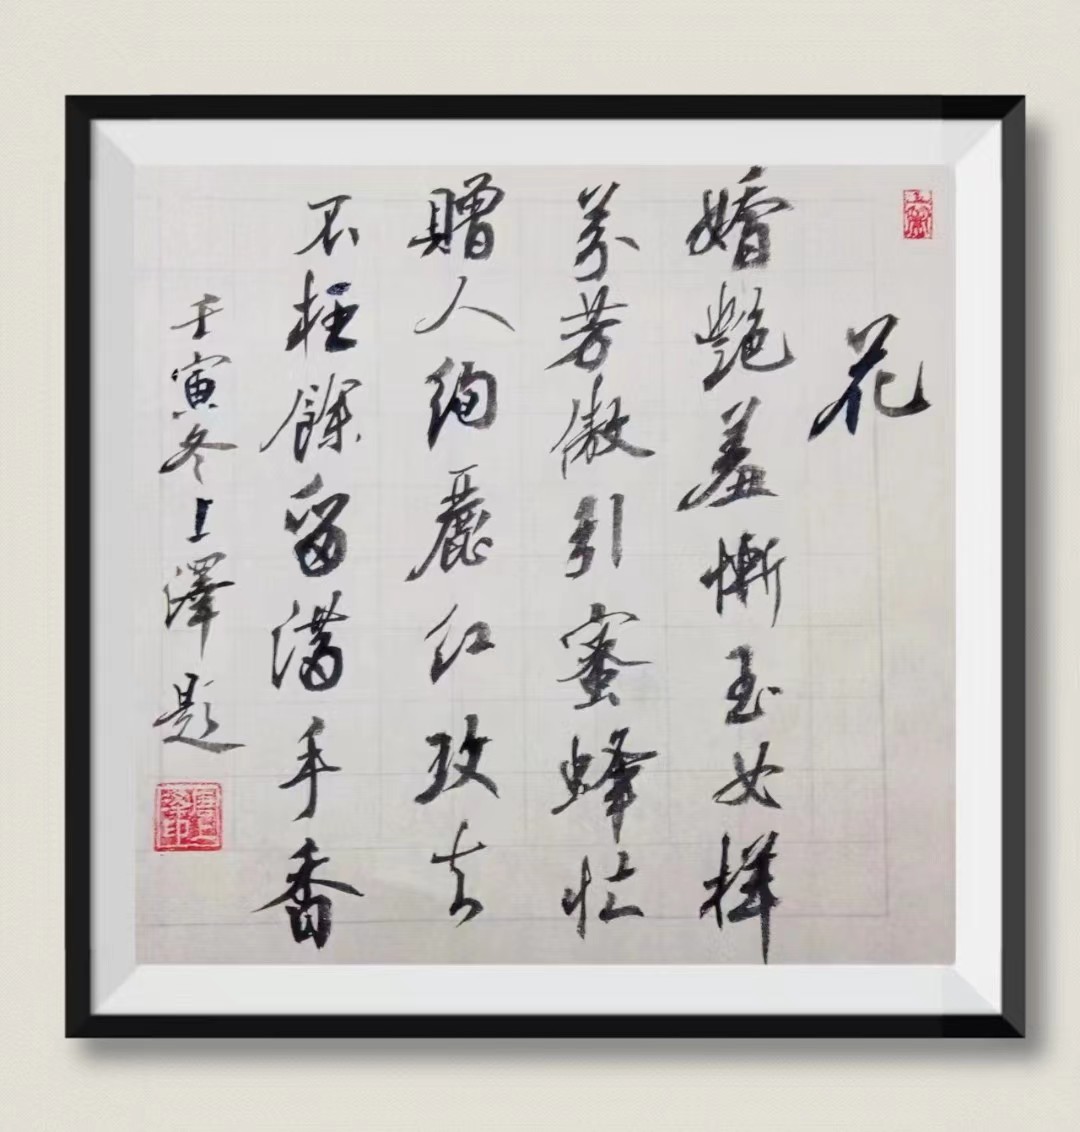 花
婚艷羞慚玉女样
芬芳傲引蜜蜂忙
贈人絢麗紅玫去
不枉餘留满手香
壬寅冬上澤题